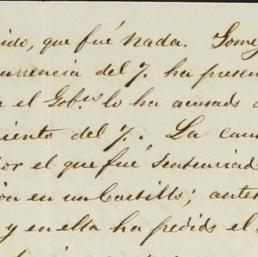 ido, que fué nada. Some
currencia del 7. ha prese
el Gob.no lo ha acusado
iento del 7. La cau
or el que fué sentenciad
ión en un Castillo; ante
y en esta ha pedido el